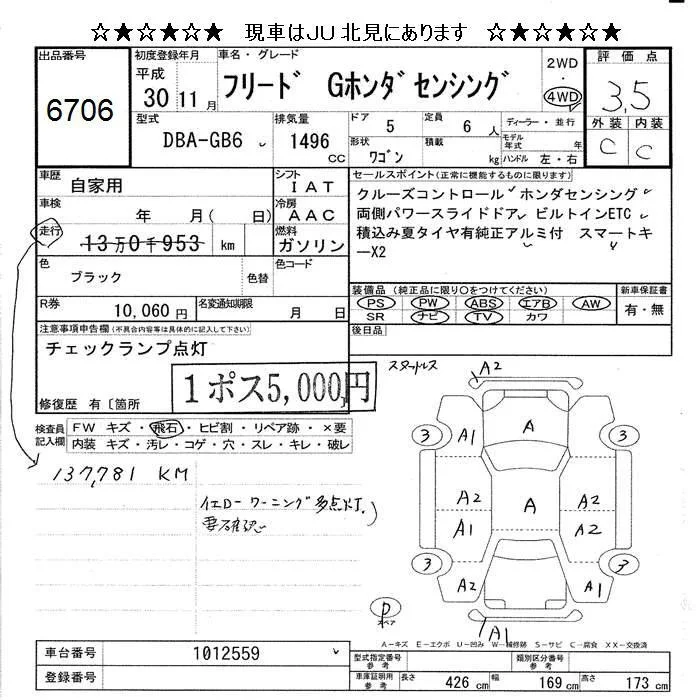 ☆★☆★☆★　現車はJU北見にあります　☆★☆★☆★
出品番号
6706
初度登録年月
平成
30 11 月
車名・グレード
フリード　Gホンダセンシング
2WD
・
4WD
評価点
3,5
外装　内装
C　C
型式
DBA-GB6
排気量
1496
CC
ドア
5
定員
6 人
ディーラー・並行
形状
ワゴン
積載
kg
モデル年式　年
ハンドル　左・右
車歴
自家用
シフト
IAT
車検
年　月(　日)
冷房
AAC
走行
13万0千953 km
燃料
ガソリン
色
ブラック
色替
色コード
R券
10,060円
名変通知期限
月　日
セールスポイント(正常に機能するものに限ります)
クルーズコントロール　ホンダセンシング
両側パワースライドドア　ビルトインETC
積込み夏タイヤ有純正アルミ付　スマートキ
ーX2
装備品（純正品に限り〇をつけてください）
PS　PW　ABS　エアB　AW
SR　ナビ　TV　カワ
新車保証書
有・無
後日品
注意事項申告欄(不具合内容等は具体的に記入して下さい)
チェックランプ点灯
1ポス5,000円
修復歴　有〔箇所
検査員記入欄
FW　キズ・飛石・ヒビ割・リペア跡・×要
内装　キズ・汚レ・コゲ・穴・スレ・キレ・破レ
137,781 KM
イエローワーニング多点灯.
要確認
スタットレス
A2
3　A1　A　3
A2　A2
A　
A1　A2
3　A2　A1　3
P
スペア
A1
A－キズ　E－エクボ　U－凹み　W－補修跡　S－サビ　C－腐食　XX－交換済
車台番号
1012559
登録番号
型式指定番号
参考
類別区分番号
参考
車庫証明用
参考
長さ　426 cm　幅　169 cm　高さ　173 cm